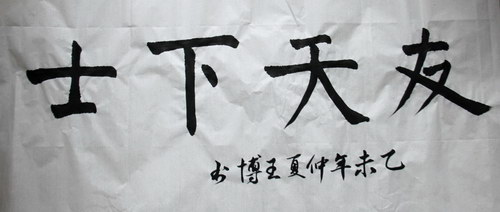 友天下士
乙未年仲夏王博书